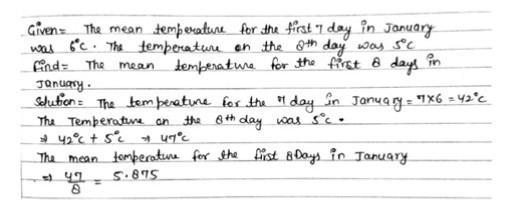 Given= The mean temperature for the first 7 day in January
was 6°C. The temperature on the 8th day was 5°C
find= The mean temperature for the first 8 days in
January.
Solution= The temperature for the 7 day in January = 7×6 = 42°C
The Temperature on the 8th day was 5°C.
⇒ 42°C + 5°C → 47°C
The mean temperature for the first 8 Days in January
⇒ 47/8 = 5.875